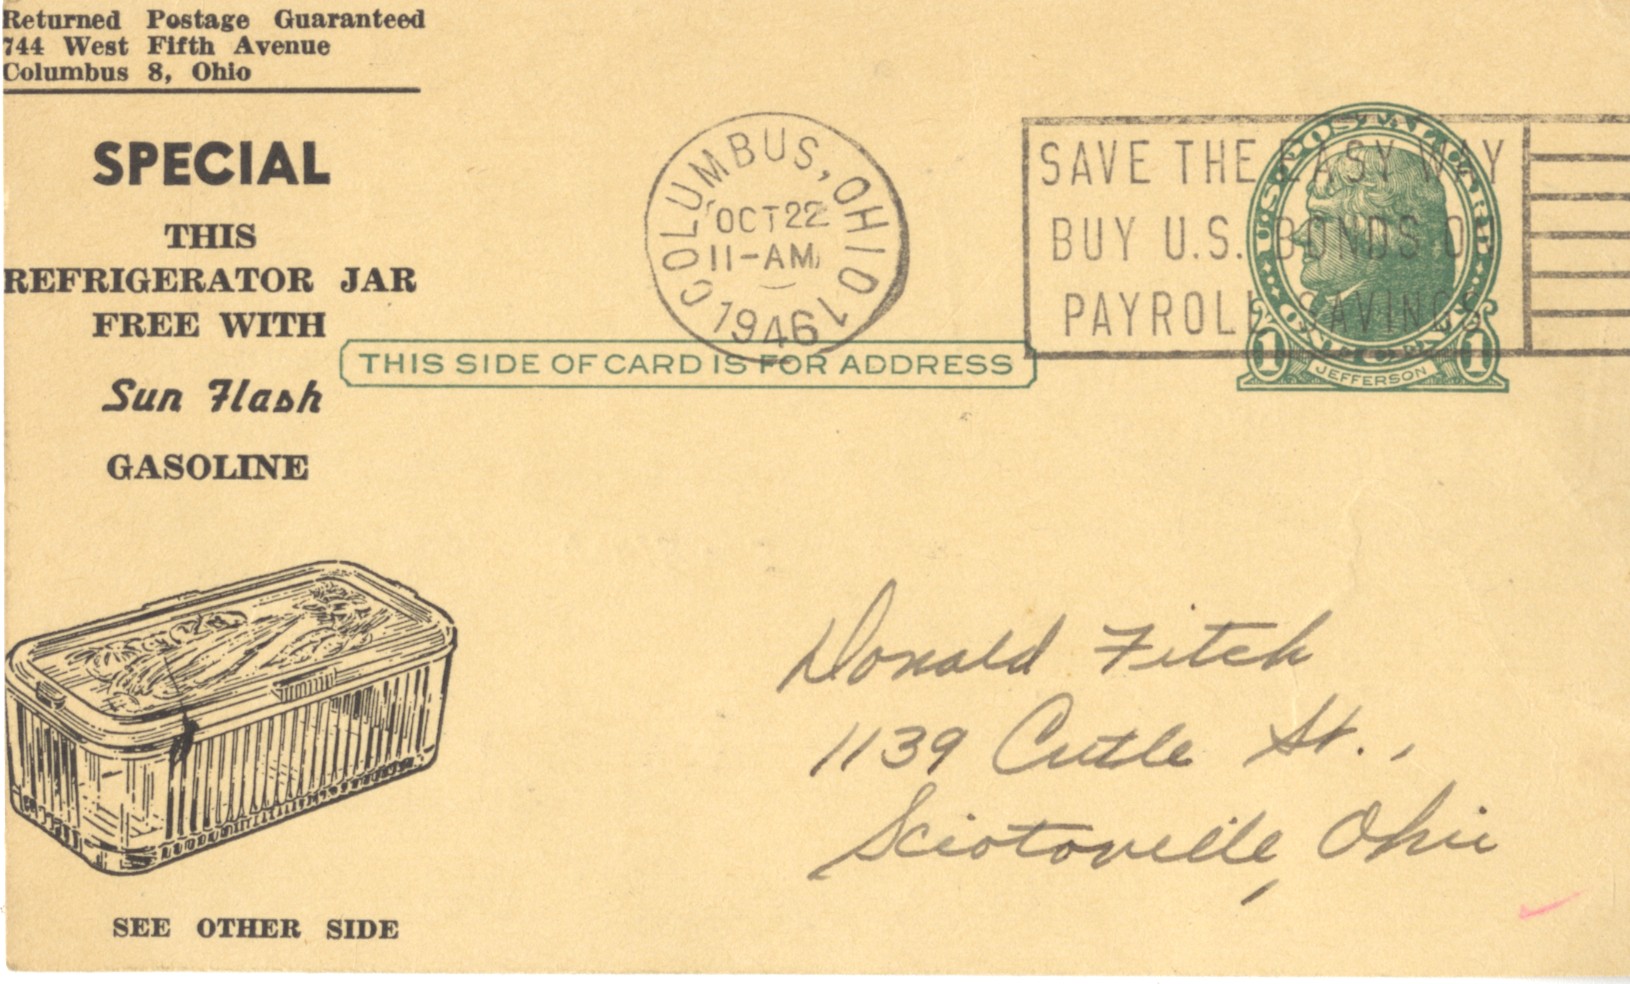 Returned Postage Guaranteed
744 West Fifth Avenue
Columbus 8, Ohio
SPECIAL
THIS
REFRIGERATOR JAR
FREE WITH
Sun Flash
GASOLINE
SEE OTHER SIDE
COLUMBUS, OHIO 1
OCT 22
11-AM
1946
SAVE THE EASY WAY
BUY U.S. BONDS O
PAYROLL SAVINGS
U.S. POSTAL CARD
1 ONE CENT 1
JEFFERSON
THIS SIDE OF CARD IS FOR ADDRESS
Donald Fitch
1139 Cutle St.,
Sciotoville, Ohio